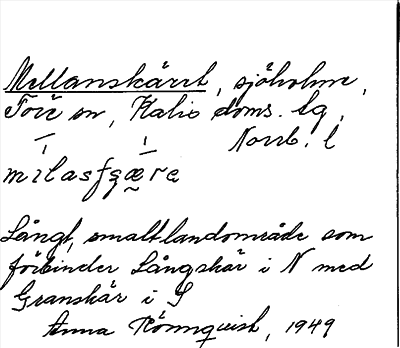 Mellanskäret, sjöholme,
Töre sn, Kalix doms. tg,
Norrb. l
mɛlasfgære
Långt, smalt landområde som
förbinder Långskär i N med
Granskär i S
Anna Rönnquist, 1949